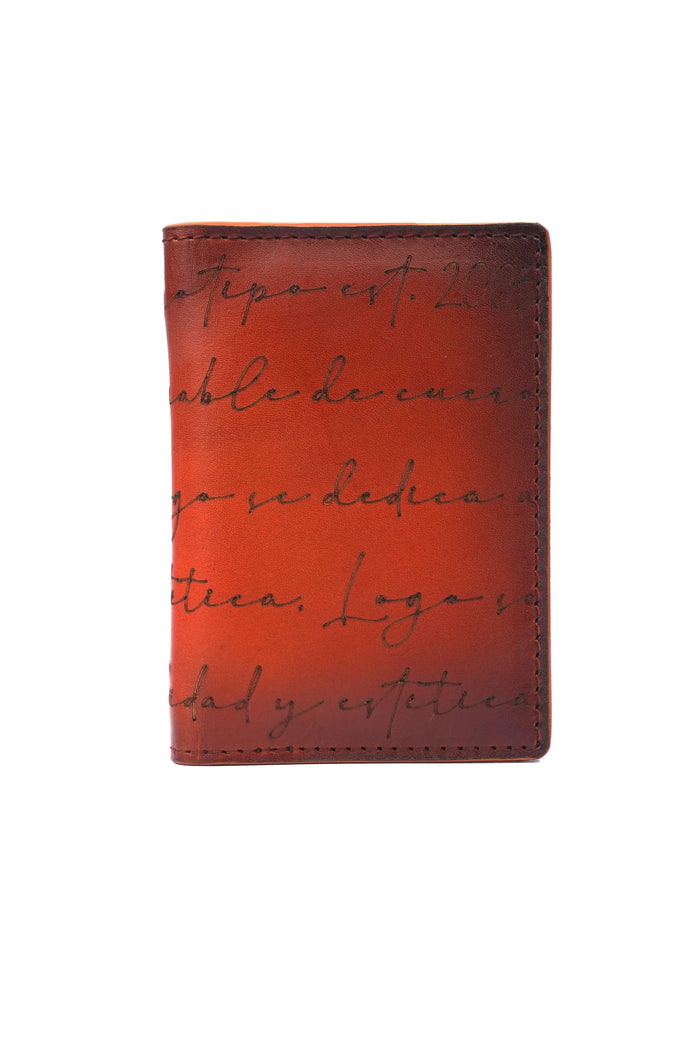 otipo est. 202
able de cuero
go se dedica a
ética. Logo se
idad y estetica